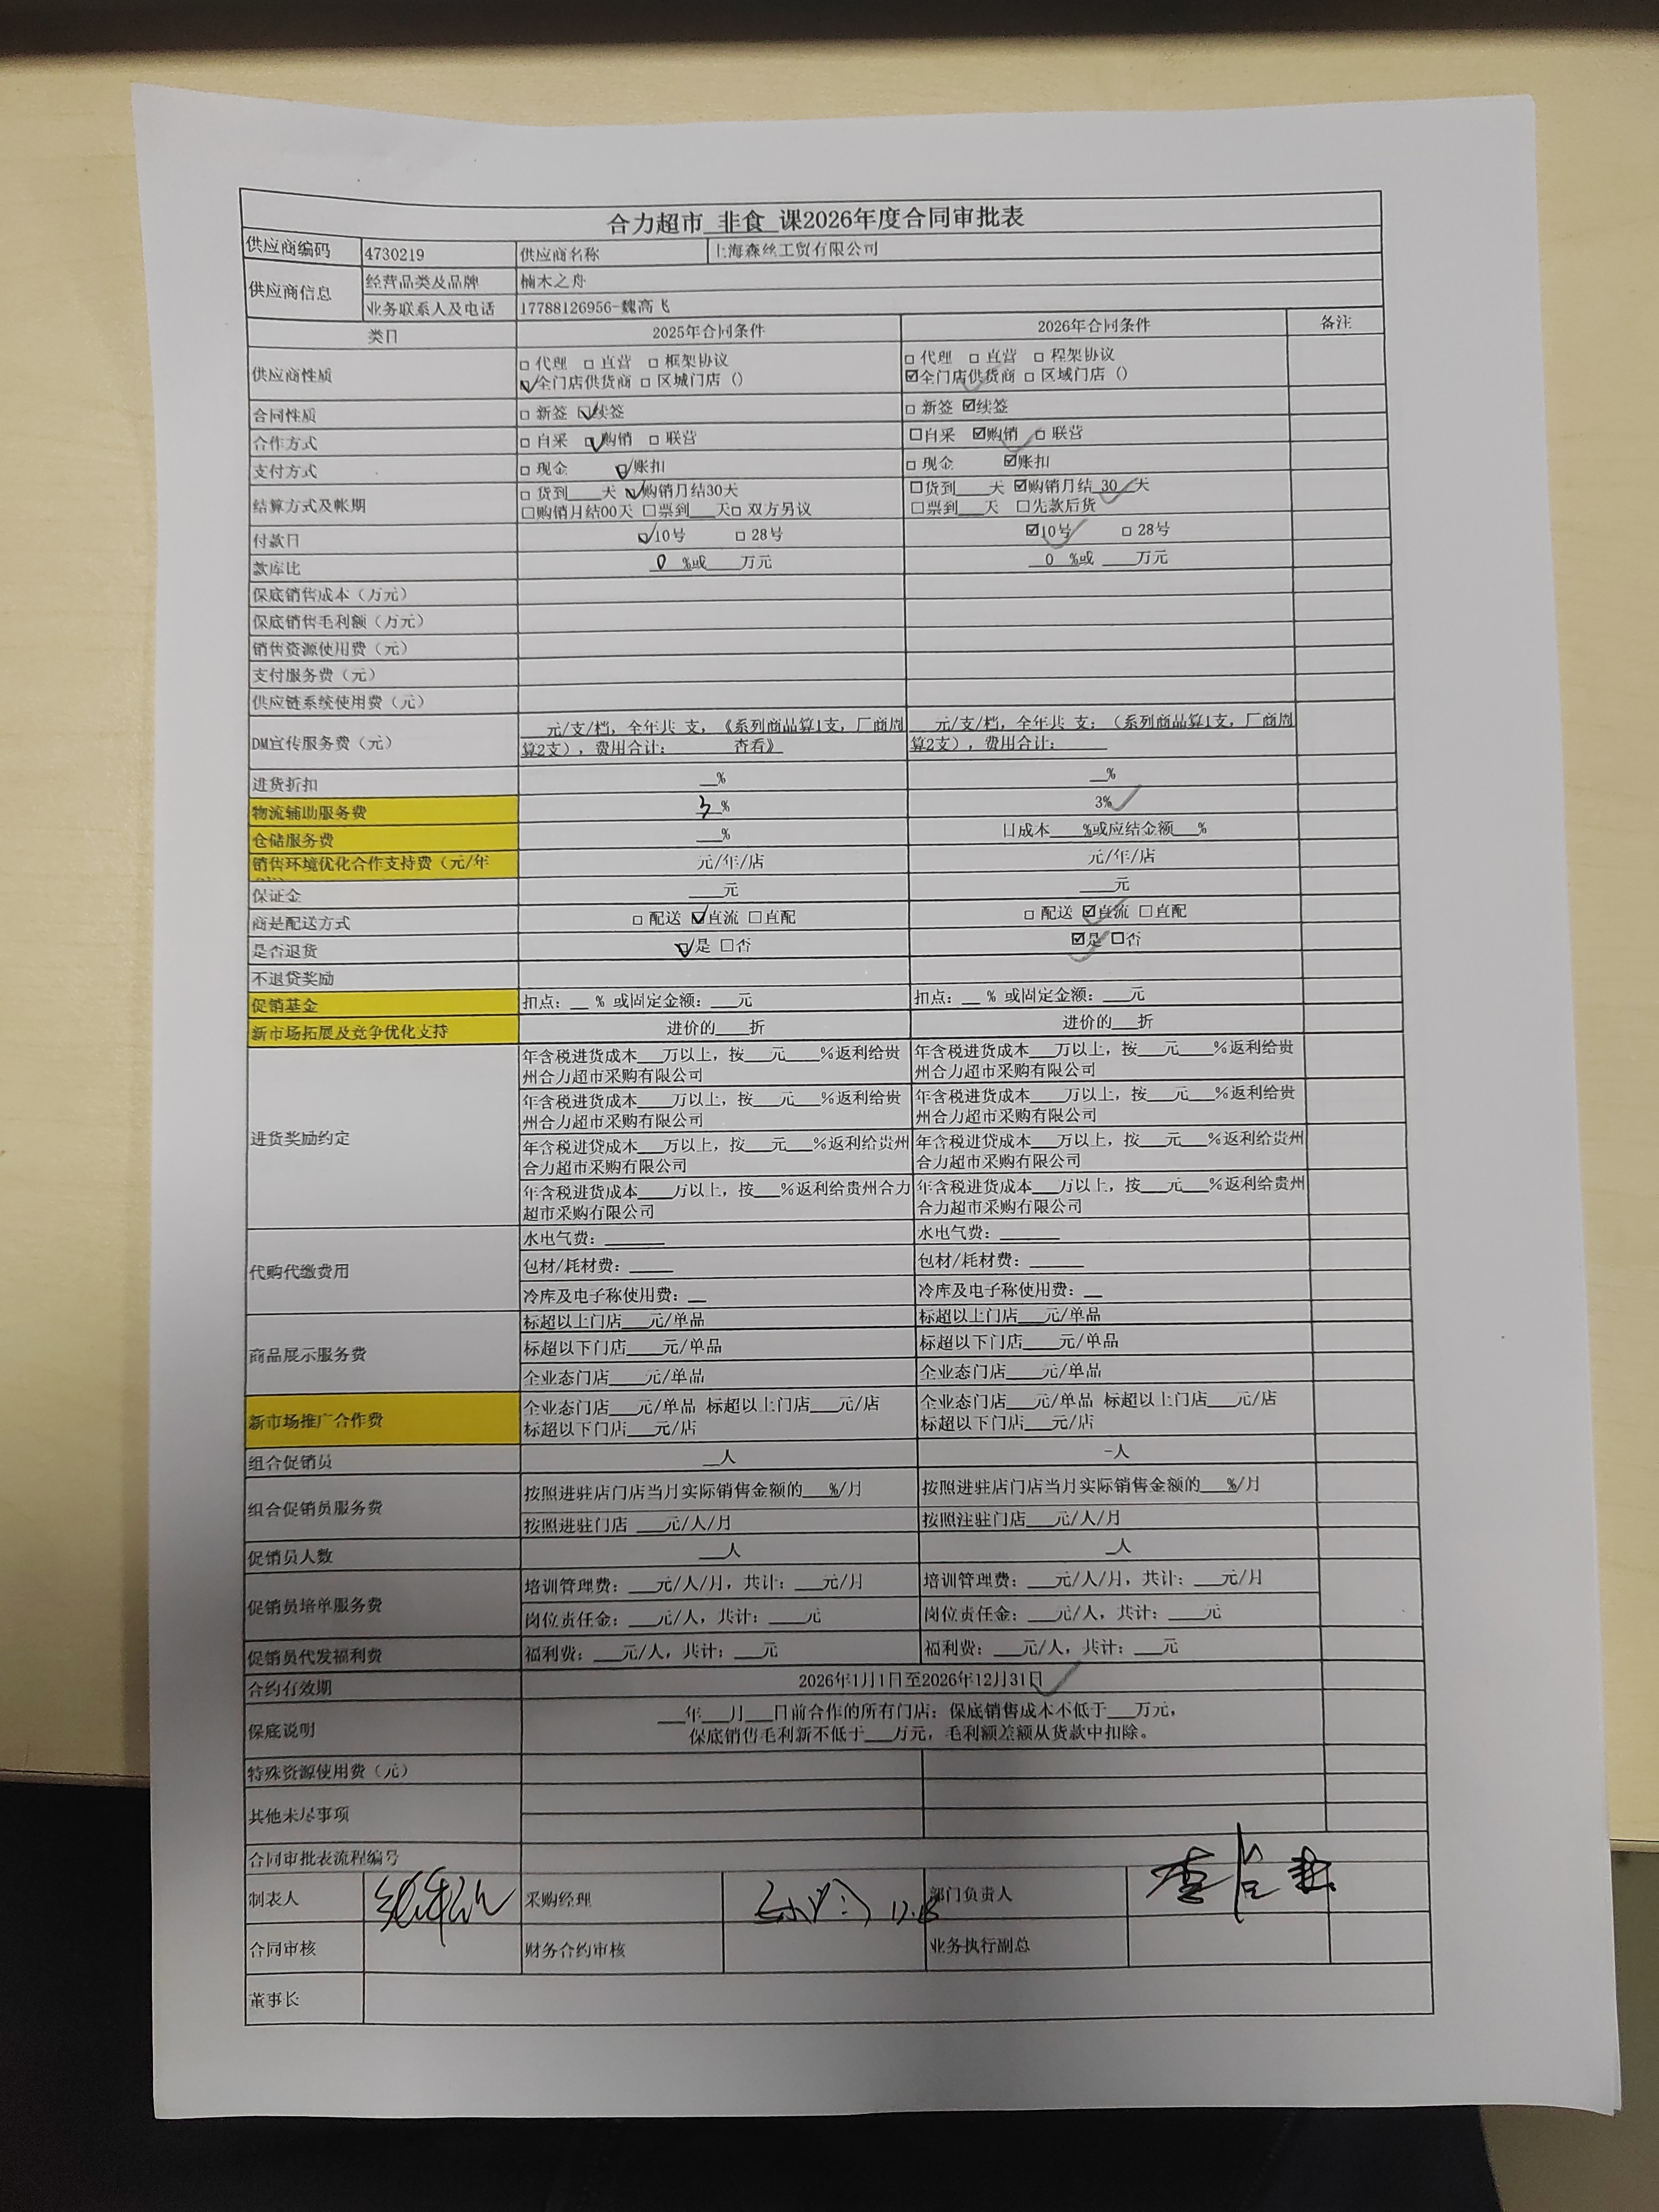 合力超市 非食 课2026年度合同审批表
供应商编码 4730219 供应商名称 上海森丝工贸有限公司
供应商信息 经营品类及品牌 楠木之舟
业务联系人及电话 17788126956-魏高飞
类目 2025年合同条件 2026年合同条件 备注
供应商性质 □ 代理 □ 直营 □ 框架协议 □ 代理 □ 直营 □ 程架协议
☑全门店供货商 □ 区城门店（） ☑全门店供货商 □ 区域门店（）
合同性质 □ 新签 ☑续签 □ 新签 ☑续签
合作方式 □ 自采 ☑购销 □ 联营 □自采 ☑购销 □ 联营
支付方式 □ 现金 ☑账扣 □ 现金 ☑账扣
结算方式及帐期 □ 货到____天 ☑购销月结30天 □货到____天 ☑购销月结 30 天
□购销月结00天 □票到___天□ 双方另议 □票到___天 □先款后货
付款日 ☑10号 □ 28号 ☑10号 □ 28号
款库比 0 %或____万元 0 %或____万元
保底销售成本（万元）
保底销售毛利额（万元）
销售资源使用费（元）
支付服务费（元）
供应链系统使用费（元）
DM宣传服务费（元） ___元/支/档，全年共 支，《系列商品算1支，厂商周 ___元/支/档，全年共 支；（系列商品算1支，厂商周
算2支），费用合计： 杳看》 算2支），费用合计：
进货折扣 __% __%
物流辅助服务费 3% 3%
仓储服务费 __% 口成本____%或应结金额___%
销售环境优化合作支持费（元/年 元/年/店 元/年/店
保证金 ____元 ____元
商是配送方式 □ 配送 ☑直流 □直配 □ 配送 ☑直流 □直配
是否退货 ☑是 □否 ☑是 □否
不退贷奖励
促销基金 扣点：__ % 或固定金额：___元 扣点：__ % 或固定金额：___元
新市场拓展及竞争优化支持 进价的____折 进价的___折
进货奖励约定 年含税进货成本___万以上，按___元____%返利给贵 年含税进货成本___万以上，按___元____%返利给贵
州合力超市采购有限公司 州合力超市采购有限公司
年含税进货成本____万以上，按___元___%返利给贵 年含税进货成本____万以上，按___元___%返利给贵
州合力超市采购有限公司 州合力超市采购有限公司
年含税进贷成本___万以上，按___元___%返利给贵州 年含税进贷成本___万以上，按___元___%返利给贵州
合力超市采购有限公司 合力超市采购有限公司
年含税进货成本____万以上，按___%返利给贵州合力 年含税进货成本___万以上，按___元___%返利给贵州
超市采购有限公司 合力超市采购有限公司
代购代缴费用 水电气费：______ 水电气费：______
包材/耗材费：____ 包材/耗材费：_____
冷库及电子称使用费：__ 冷库及电子称使用费：__
商品展示服务费 标超以上门店___元/单品 标超以上门店___元/单品
标超以下门店____元/单品 标超以下门店____元/单品
企业态门店____元/单品 企业态门店____元/单品
新市场推广合作费 企业态门店____元/单品 标超以上门店____元/店 企业态门店____元/单品 标超以上门店____元/店
标超以下门店____元/店 标超以下门店____元/店
组合促销员 __人 -人
组合促销员服务费 按照进驻店门店当月实际销售金额的___%/月 按照进驻店门店当月实际销售金额的___%/月
按照进驻门店 ___元/人/月 按照注驻门店___元/人/月
促销员人数 ___人 __人
促销员培单服务费 培训管理费：___元/人/月，共计：___元/月 培训管理费：___元/人/月，共计：___元/月
岗位责任金：____元/人，共计：____元 岗位责任金：____元/人，共计：____元
促销员代发福利费 福利费：___元/人，共计：___元 福利费：___元/人，共计：___元
合约有效期 2026年1月1日至2026年12月31日
保底说明 ___年___月___日前合作的所有门店；保底销售成本不低于___万元，
保底销售毛利新不低于___万元，毛利额差额从货款中扣除。
特殊资源使用费（元）
其他未尽事项
合同审批表流程编号
制表人 采购经理 12.18 部门负责人
合同审核 财务合约审核 业务执行副总
董事长